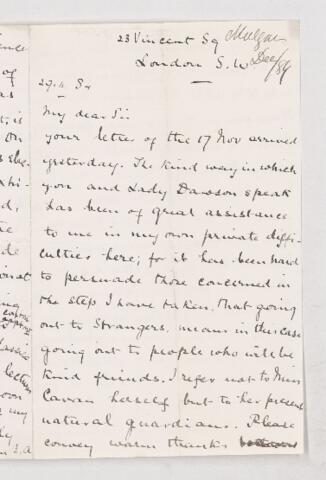 23 Vincent Sq
London S.W.
Dec/84
29.11.84
My dear Sir
your letter of the 17 Nov arrived
yesterday. The kind way in which
you and Lady Dawson speak
has been of great assistance
to me in my own private diffi-
culties here; for it has been hard
to persuade those concerned in
the step I have taken, that going
out to strangers, means in this case
going out to people who will be
kind friends. I refer not to Miss
Cavan herself but to her present
natural guardian. Please
convey warm thanks
of
on
lecture
my